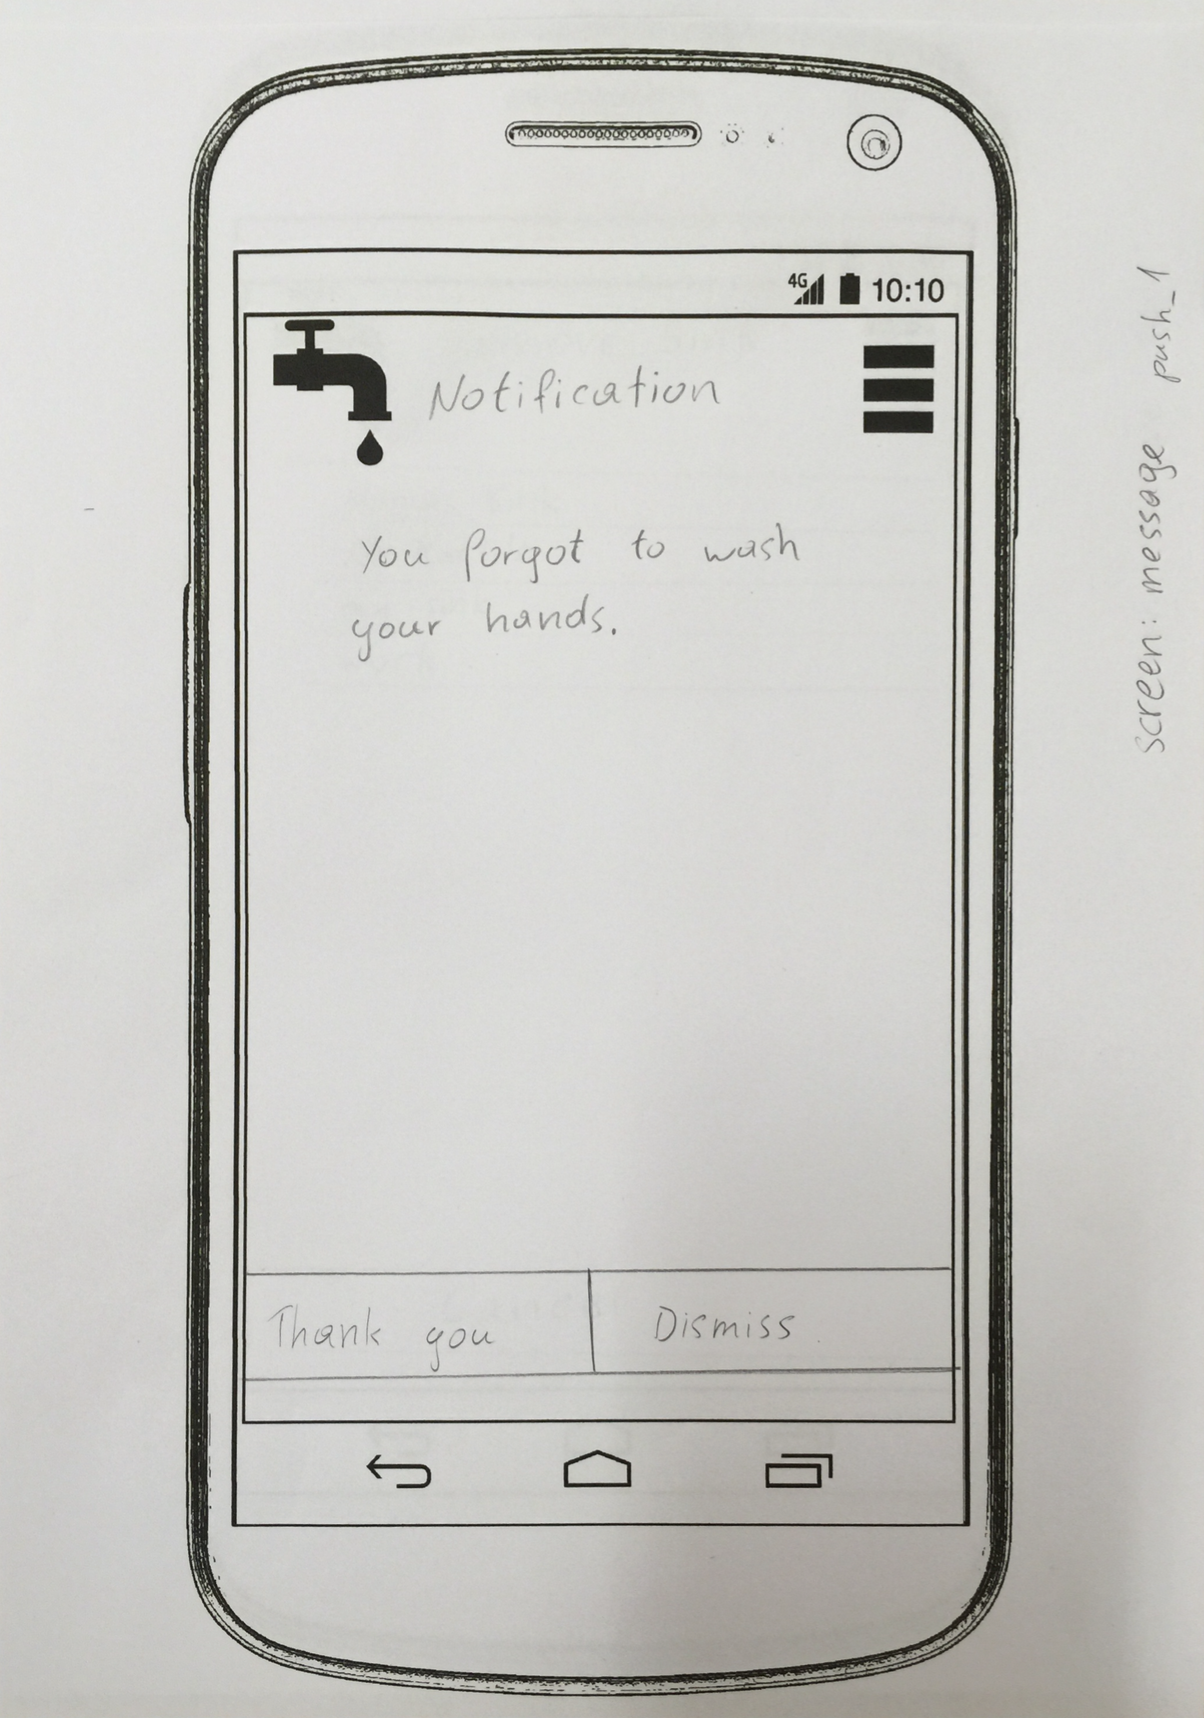 4G 10:10
Notification
You forgot to wash
your hands.
Thank you
Dismiss
screen: message push_1